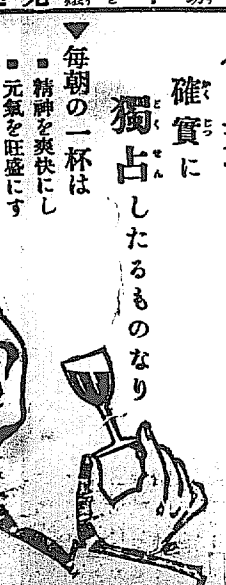 確實に
獨占したるものなり
▼毎朝の一杯は
■精神を爽快にし
■元氣を旺盛にす